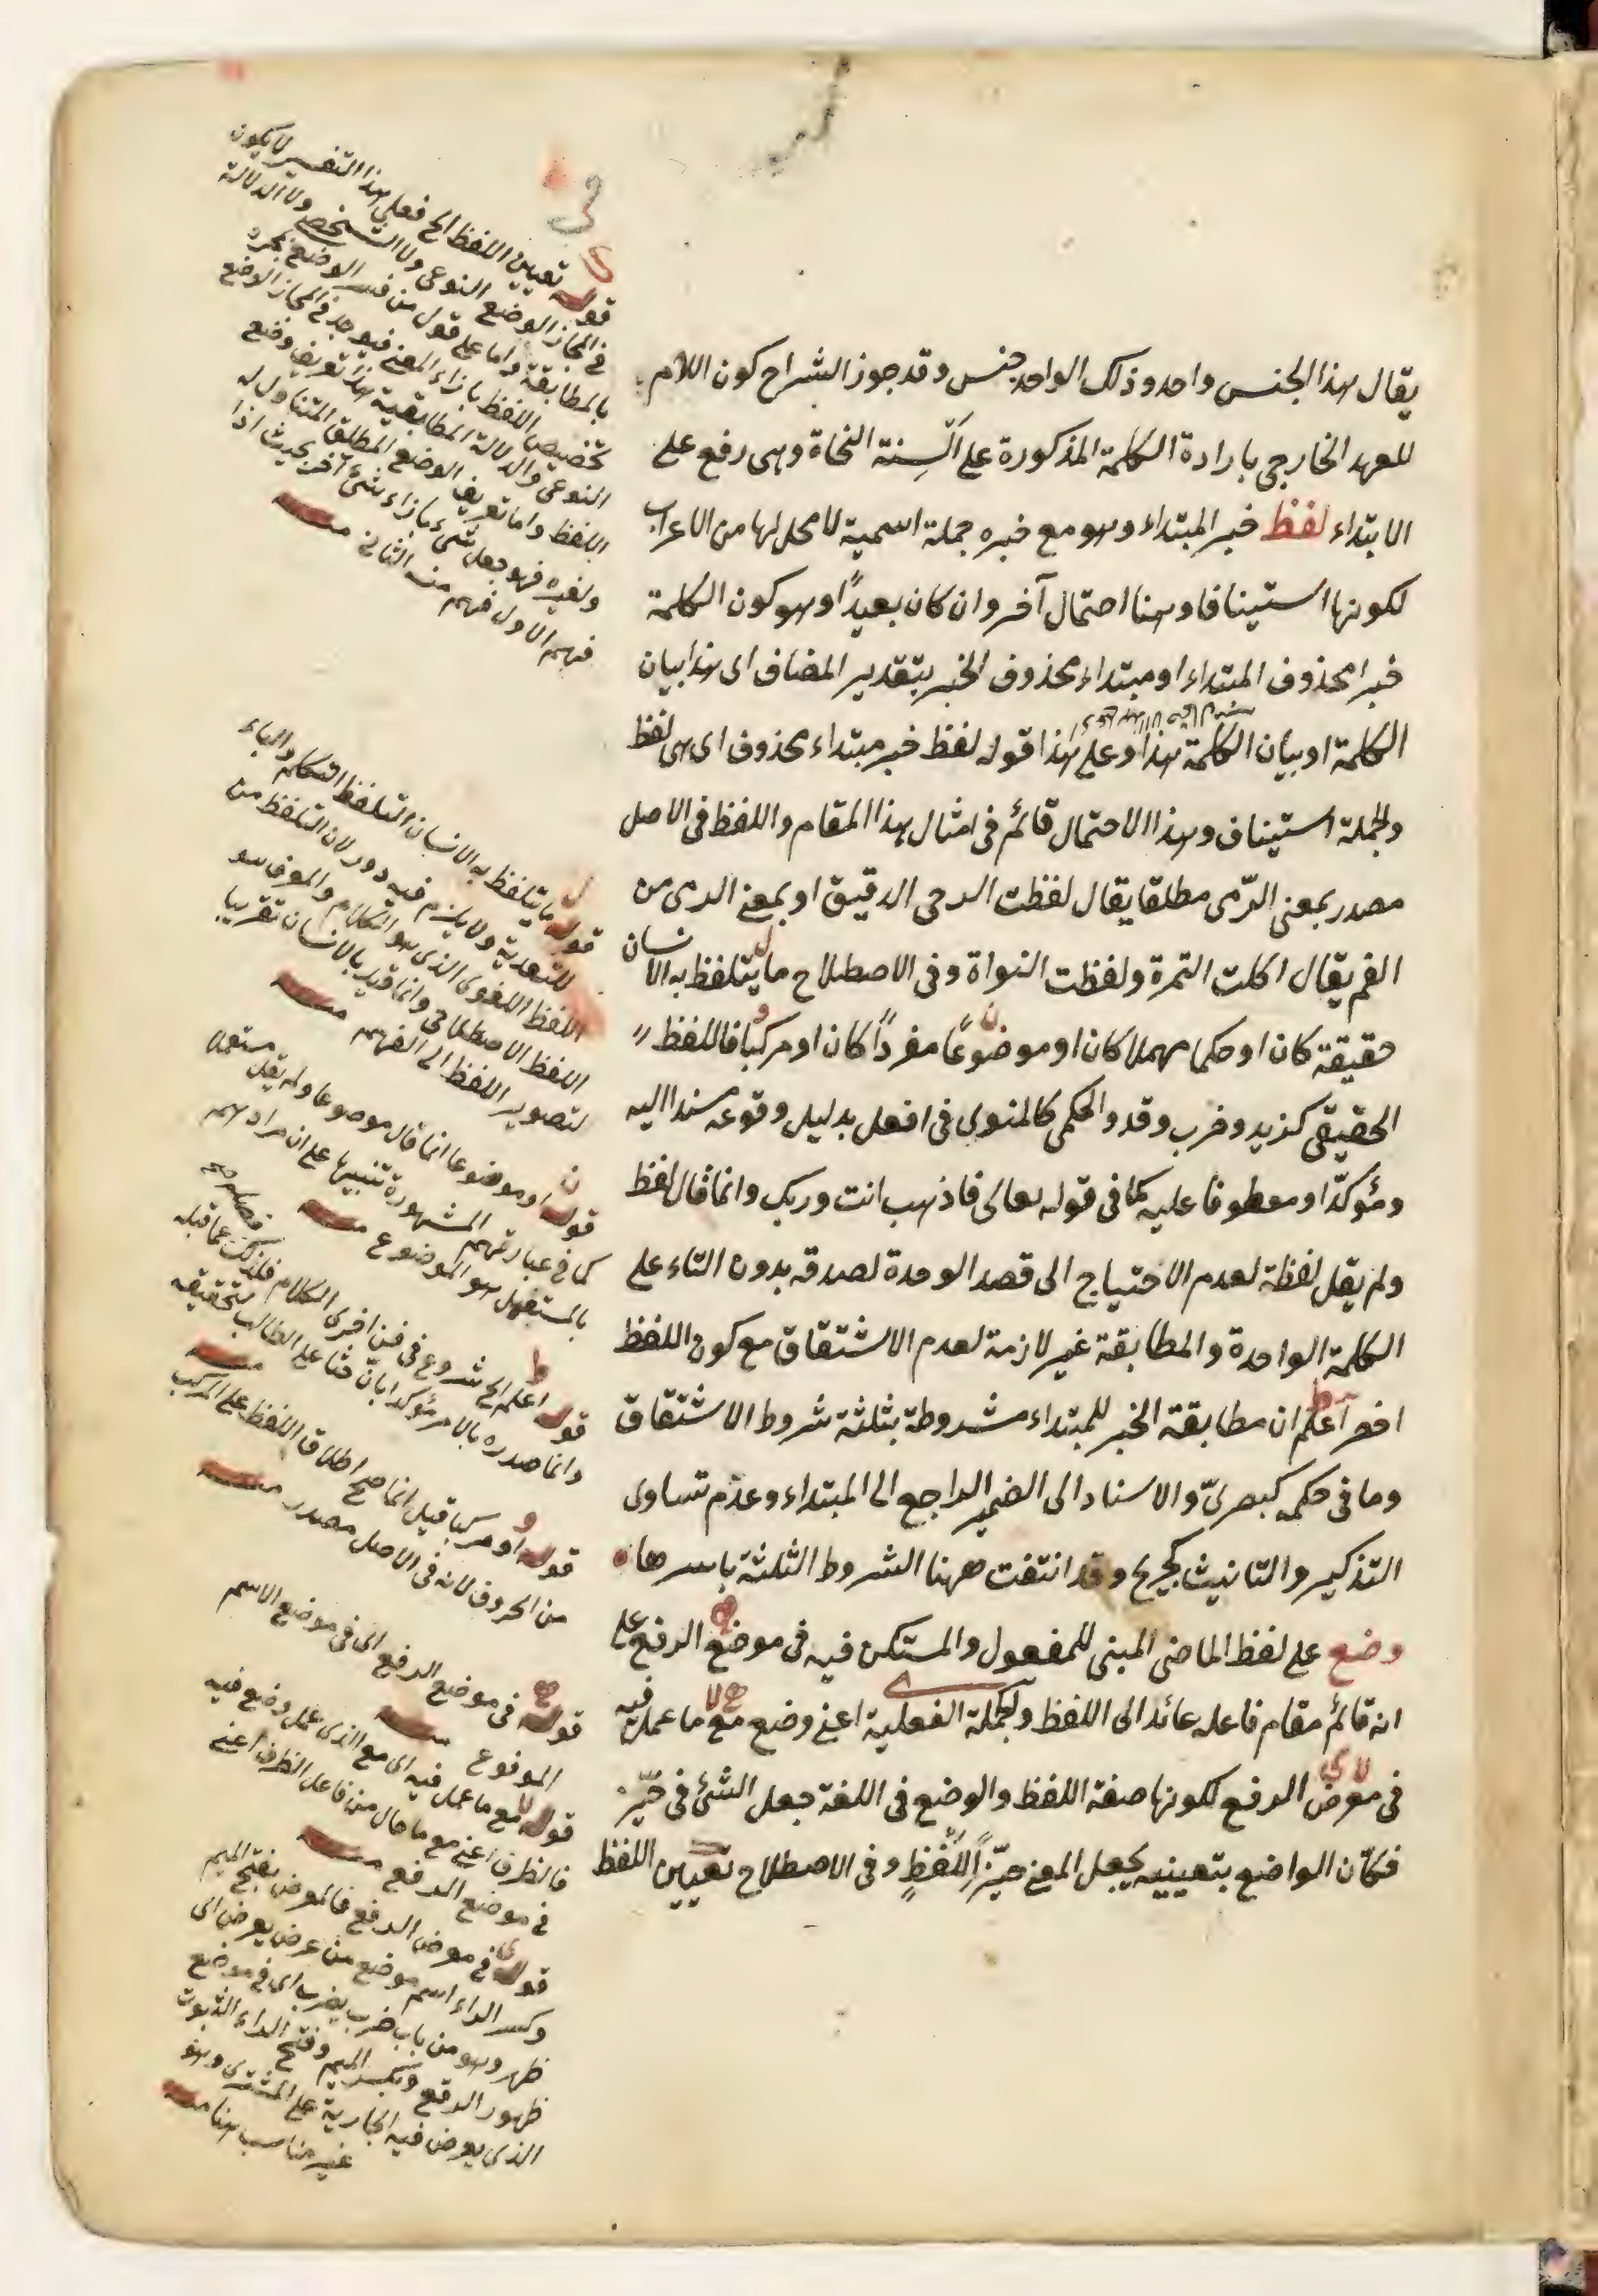 يقال هذا الجنس واحد وذلك الواحد جنس وقد جوز الشراح كون اللام
للعهد الخارجي بارادة الكلمة المذكورة على اَلْسِنة النحاة وهى رفع على
الابتداء لفظ خبر المبتداء وهو مع خبره جملة اسمية لا محل لها من الاعراب
لكونها استينافا وهنا احتمال آخر وان كان بعيداً وهو كون الكلمة
خبرا محذوف المبتداء او مبتداء محذوف الخبر بتقدير المضاف اى هذا بيان
الكلمة او بيان الكلمة هذا وعلى هذا قوله لفظ خبر مبتداء محذوف اى هى لفظ
والجملة استيناف وهذا الاحتمال قائم فى امثال هذا المقام واللفظ فى الاصل
مصدر بمعنى الرّمى مطلقا يقال لفظت الرحى الدقيق او بمعنى الرمى من
الفم يقال اكلت التمرة ولفظت النواة وفى الاصطلاح ما يتلفظ به الانسان
حقيقة كان او حكما مهملا كان او موضوعاً مفرداً كان او مركبا فاللفظ
الحقيقى كزيد وضرب وقد والحكمى كالمنوى فى افعل بدليل وقوعه مسندا اليه
ومؤكدّا ومعطوفا عليه كما فى قوله تعالى فاذهب انت وربك وانما قال لفظ
ولم يقل لفظة لعدم الاحتياج الى قصد الوحدة لصدقه بدون التاء على
الكلمة الواحدة والمطابقة غير لازمة لعدم الاشتقاق مع كون اللفظ
اخصر اعلم ان مطابقة الخبر للمبتداء مشروطة بثلثة شروط الاشتقاق
وما فى حكمه كبصرىّ والاسناد الى الضمير الراجع الى المبتداء وعدم تساوى
التذكير والتانيث كجريح وقد انتفت ههنا الشروط الثلثة باسرها
وضع على لفظ الماضى المبنى للمفعول والمستكن فيه فى موضع الرفع على
انه قائم مقام فاعله عائد الى اللفظ والجملة الفعلية اعنى وضع مع ما عمل فيه
فى معرض الرفع لكونها صفة اللفظ والوضع فى اللغة جعل الشئ فى حيّز
فكانّ الواضع بتعيينه يجعل المعنى حيّزاً لِلَّفْظِ وفى الاصطلاح تعيين اللفظ
قوله تعيين اللفظ الخ فعلى هذا التفسير لا يكون
فى المجاز الوضع النوعى ولا الشخصى ولا الدلالة
بالمطابقة واما على قول من فسر الوضع بمجرد
تخصيص اللفظ بازاء المعنى فيوجد فى المجاز الوضع
النوعى والدلالة المطابقية هذا تعريف وضع
اللفظ واما تعريف الوضع المطلق المتناول له
ولغيره فهو جعل شىء بازاء شىء آخر بحيث اذا
فهم الاول فهم منه الثانى منه
قوله ما يتلفظ به الانسان التلفظ التكلم والباء
للتعدية ولا يلزم فيه دور لان التلفظ من
اللفظ اللغوى الذى هو الكلام والمعرف هو
اللفظ الاصطلاحى وانما قيد بالانسان تقريبا
لتصوير اللفظ الى الفهم منه
قوله او موضوعا انما قال موضوعا ولم يقل مستعملا
كما فى عبارتهم المشهورة تنبيها على ان مرادهم
بالمستعمل هو الموضوع منه
قوله اعلم الخ شروع فى فن اخرى الكلام فلذلك عما قبله
وانما صدره بالامر مؤكدا بانّ حثا على الطالب لتحقيقه منه
قوله او مركبا قيل انما صح اطلاق اللفظ على المركب
من الحروف لانه فى الاصل مصدر منه
قوله فى موضع الرفع اى فى موضع الاسم
المرفوع منه
قوله مع ما عمل فيه اى مع الذى عمل وضع فيه
فالظرف اعنى مع ما حال من فاعل الظرف اعنى
فى موضع الرفع منه
قوله فى معرض الرفع فالمعرض بفتح الميم
وكسر الراء اسم موضع من عرض يعرض اى
ظهر وهو من باب ضرب يضرب اى فى موضع
ظهور الرفع وبكسر الميم وفتح الراء الثبوت
الذى يعرض فيه الجارية على المشترى وهو
غير مناسب هنا منه